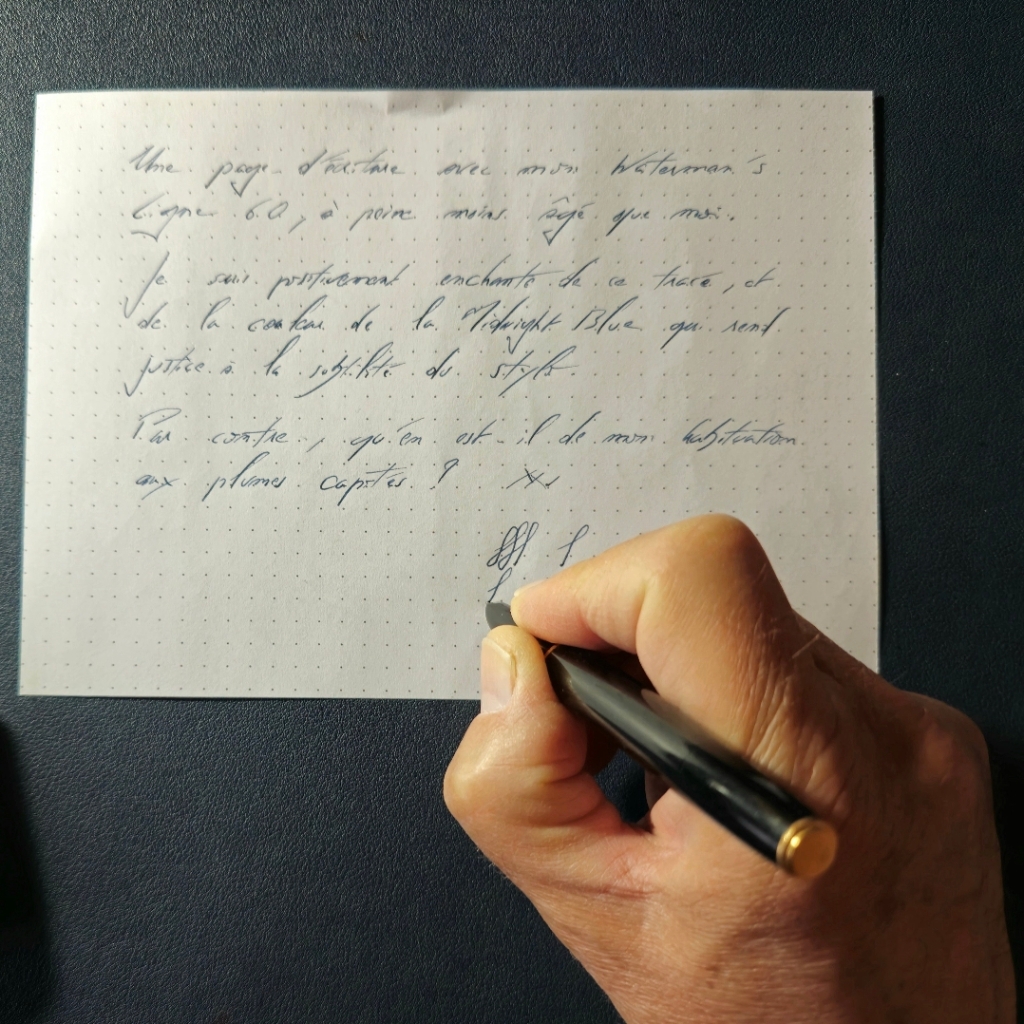 Une page d'écriture avec mon Waterman's
Ligne 60, à peine moins âgé que moi.
Je suis positivement enchanté de ce tracé, et
de la couleur de la Midnight Blue qui rend
justice à la subtilité du stylo.
Par contre, qu'en est-il de mon habituation
aux plumes capotées ?
fff f
f